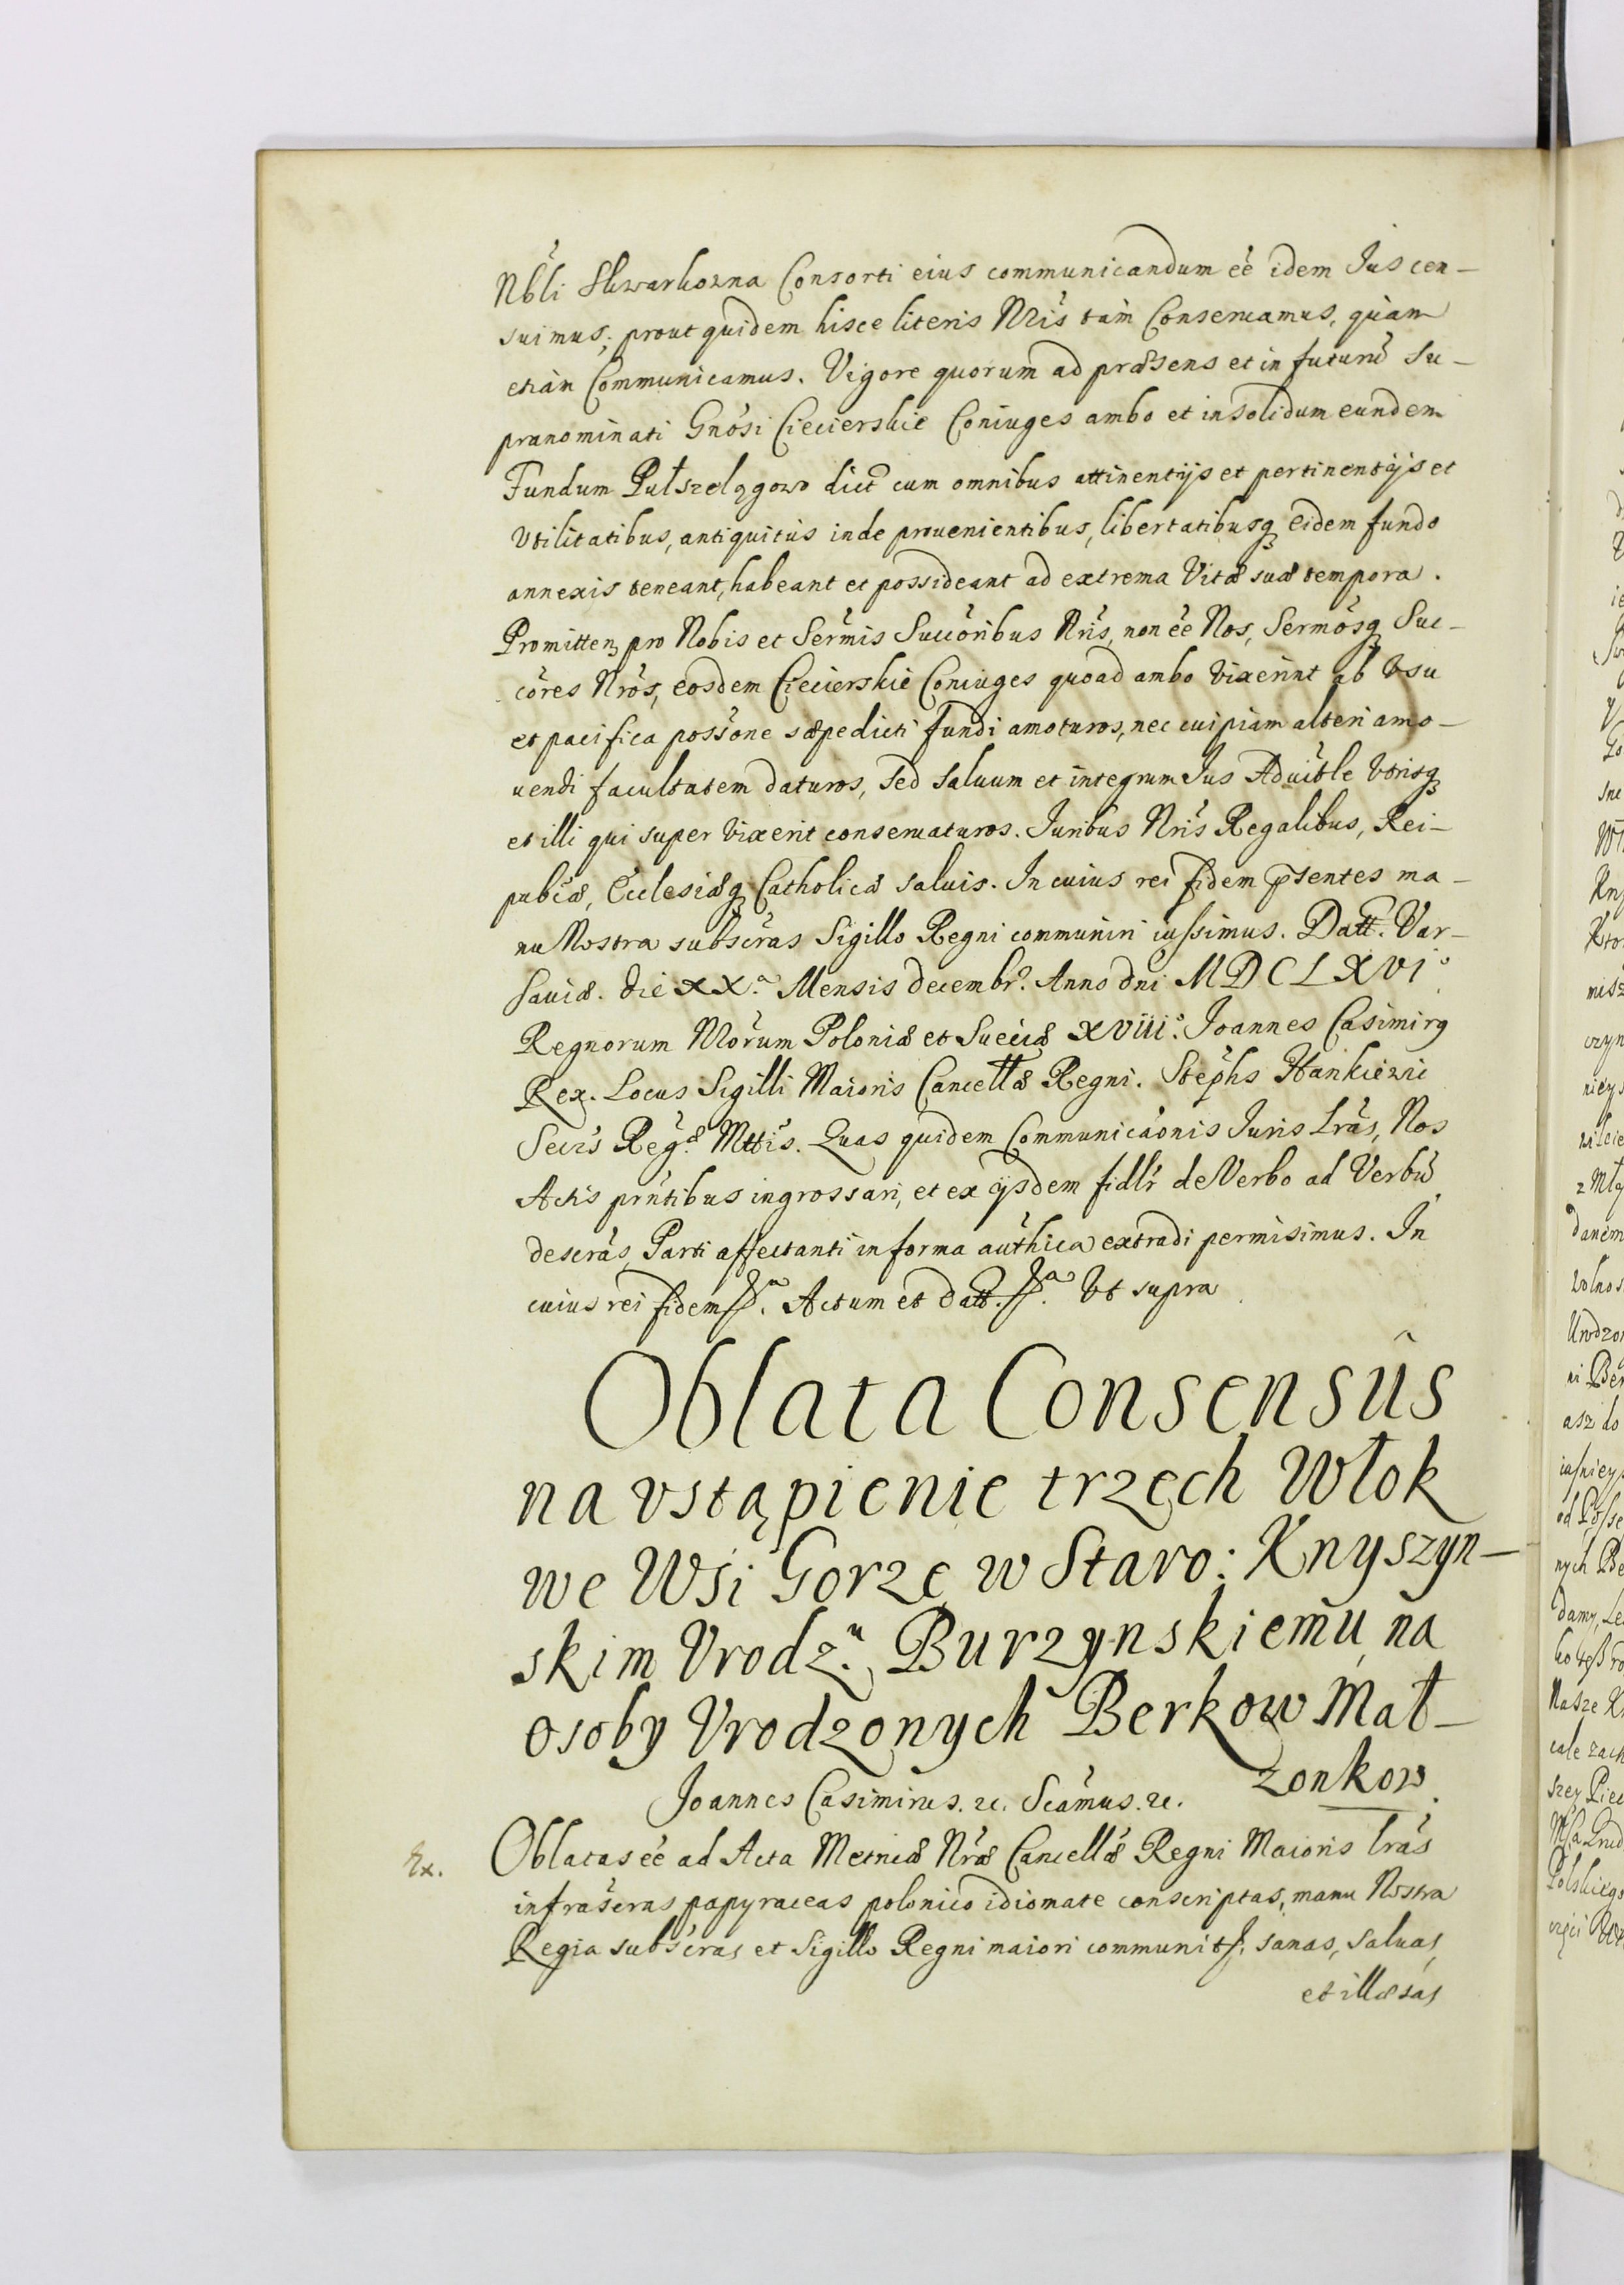 Nbli Skwarkowna Consorti eius communicandum ee͂ idem Jus cen-
suimus; prout quidem hisce literis Nris tam Conseruamus, quàm
etiàm Communicamus. Vigore quorum ad præsens et in futurũ Su-
pranominati Gnosi Ciecierskie Coniuges ambo et in solidum eundem
Fundum Pułszelągowo dict cum omnibus attinentijs et pertinentijs et
Vtilitatibus, antiquitùs inde prouenientibus, libertatibusq eidem fundo
annexis teneant, habeant et possideant ad extrema Vitæ suæ tempora.
Promitten pro Nobis et Sermis Succoribus Nris, non ee͂ Nos, Sermosq Suc-
cores Nros, eosdem Ciecierskie Coniuges quoad ambo vixerint ab Vsu
et pacifica possone sæpedicti fundi amoturos, nec cuipiam alteri amo-
uendi facultatem daturos, sed saluum et integrum Jus Aduitle Vtrisq
et illi qui super vixerit conseruaturos. Juribus Nris Regalibus, Rei-
pubcæ, Ecclesiæq Catholicæ saluis. In cuius rei fidem psentes ma-
nu Nostra subscras Sigillo Regni communiri iussimus. Datt. Var-
sauiæ. die XX.a Mensis decembr. Anno dni MDCLXVIo.
Regnorum Nrorum Poloniæ et Sueciæ XVIII.o Joannes Casimirq
Rex. Locus Sigilli Maioris Cancellæ Regni. Stephs Hankiewic
Secrs Regæ Mttis. Quas quidem Communicaonis Juris Lras, Nos
Actis prntibus ingrossari, et ex ijsdem fidlr de Verbo ad Verbũ
descras, Parti affectanti in forma authica extradi permisimus. In
cuius rei fidem pa. Actum et datt. pa. Vt supra
Oblata Consensûs
na vstąpienie trzech Włok
we Wsi Gorze w Staro: Knyszyn-
skim Vrodz.u Burzynskiemu, na
osoby Vrodzonych Berkow Mał-
zonkow.
Joannes Casimirus. &c. Scamus. &c.
Ex.
Oblatas ee͂ ad Acta Metricæ Nræ Cancellæ Regni Maioris lras
infrascras papyraceas polonico idiomate conscriptas, manu Nostra
Regia subscras et Sigillo Regni maiori communits. sanas, saluas,
et illæsas